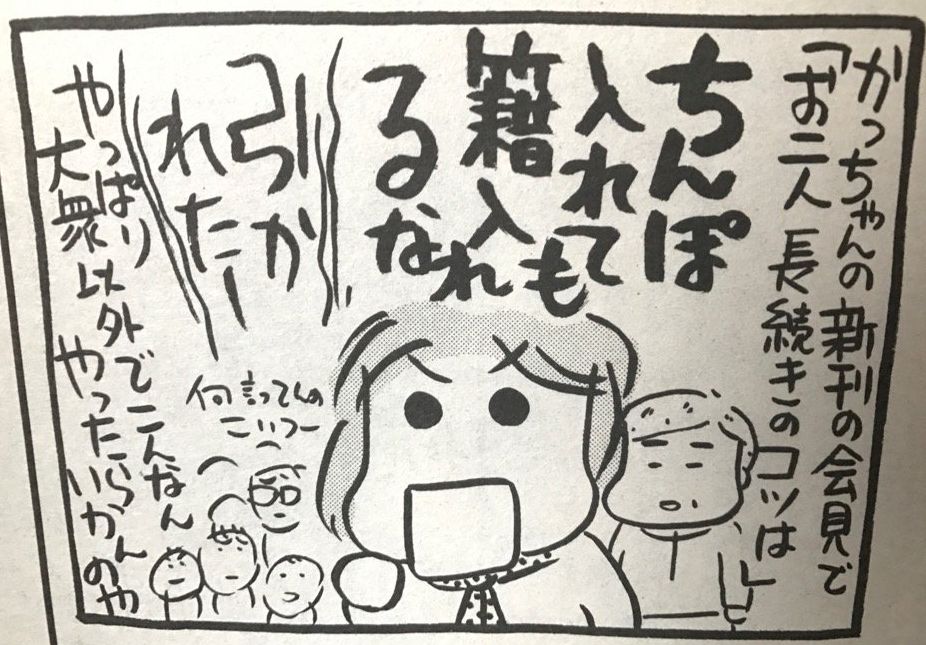 かっちゃんの新刊の会見で
「お二人長続きのコツは」
ちんぽ
入れても
籍入れ
るな
引か
れたー
何言ってんの
こいつー
やっぱり
大衆以外でこんなん
やったらいかんのや